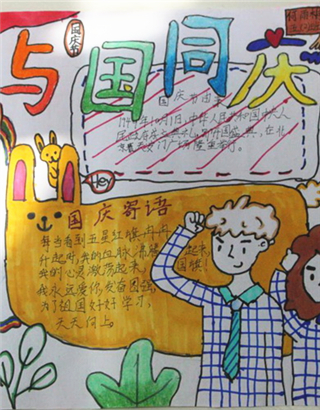 国庆节
与国同庆
国庆节由来
1949年10月1日,中华人民共和国中央人
民政府
国盛典,在北
京
广场隆重举行。
Hey
国庆寄语
每当看到五星红旗冉冉
升起时,我的血脉沸腾起来,
我的心灵激荡起来,国旗!
我永远爱你发奋图强
为了祖国好好学习,
天天向上。